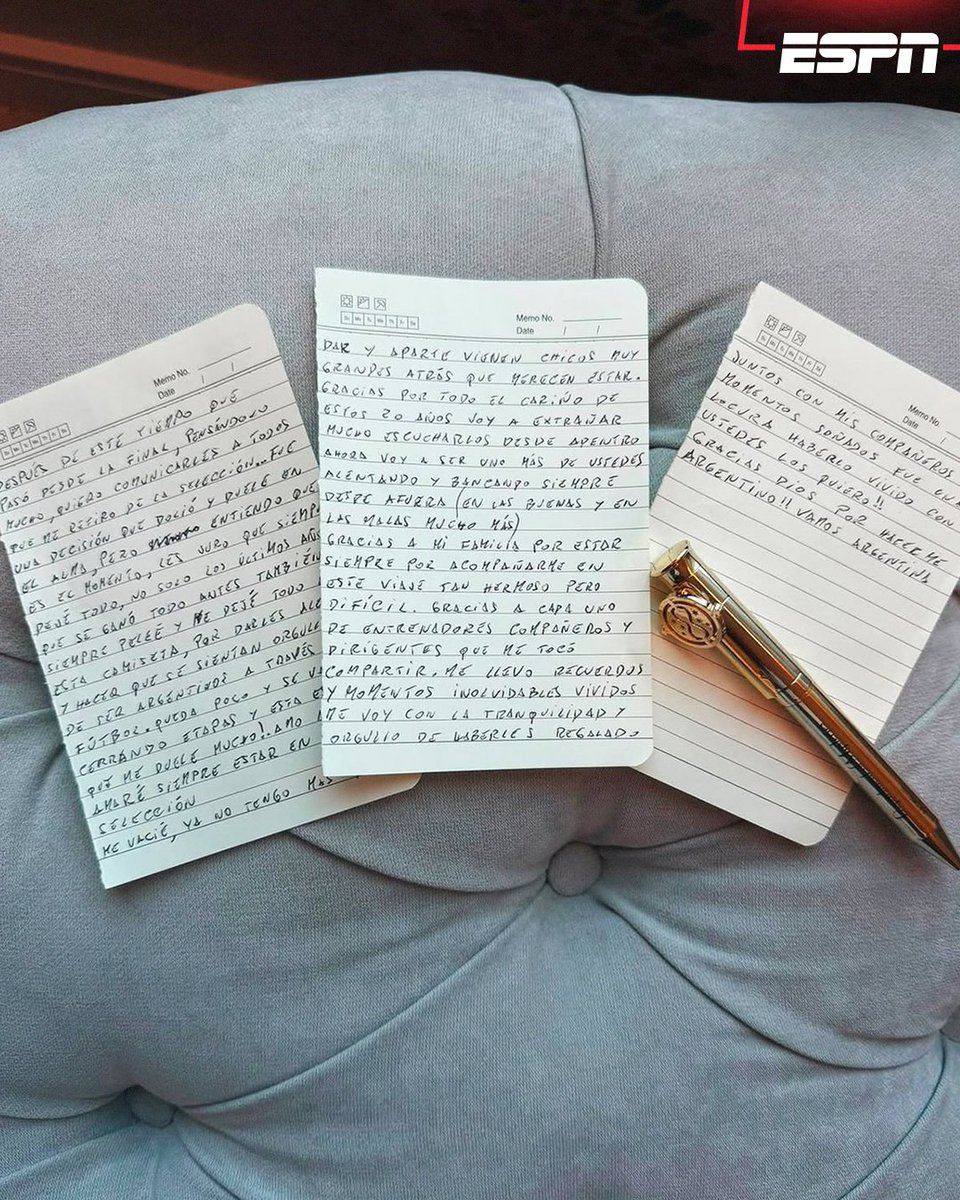 ESPN
Memo No.
Date / /
DESPUÉS DE ESTE TIEMPO QUE
PASÓ DESDE LA FINAL, PENSÁNDOLO
MUCHO, QUIERO COMUNICARLES A TODOS
QUE ME RETIRO DE LA SELECCIÓN... FUE
UNA DECISIÓN QUE DOLIÓ Y DUELE EN
EL ALMA, PERO ENTIENDO QUE
ES EL MOMENTO, LES JURO QUE SIEMP
DEJÉ TODO, NO SOLO LOS ÚLTIMOS AÑOS
QUE SE GANÓ TODO ANTES TAMBIÉN
SIEMPRE PELEÉ Y ME DEJÉ TODO
ESTA CAMISETA, POR DARLES ALE
Y HACER QUE SE SIENTAN ORGULL
DE SER ARGENTINOS A TRAVÉS
FÚTBOL. QUEDA POCO Y SE VA
CERRANDO ETAPAS Y ESTA E
QUÉ ME DUELE MUCHO! AMO
AMARÉ SIEMPRE ESTAR EN
SELECCIÓN
ME VACIÉ, YA NO TENGO MAS
Memo No.
Date / /
Su Mo Tu We Th Fr Sa
DAR Y APARTE VIENEN CHICOS MUY
GRANDES ATRÁS QUE MERECEN ESTAR.
GRACIAS POR TODO EL CARIÑO DE
ESTOS 20 AÑOS VOY A EXTRAÑAR
MUCHO ESCUCHARLOS DESDE ADENTRO
AHORA VOY A SER UNO MÁS DE USTEDES
ALENTANDO Y BANCANDO SIEMPRE
DESDE AFUERA (EN LAS BUENAS Y EN
LAS MALAS MUCHO MÁS)
GRACIAS A MI FAMILIA POR ESTAR
SIEMPRE POR ACOMPAÑARME EN
ESTE VIAJE TAN HERMOSO PERO
DIFÍCIL. GRACIAS A CADA UNO
DE ENTRENADORES COMPAÑEROS Y
DIRIGENTES QUE ME TOCÓ
COMPARTIR, ME LLEVO RECUERDOS
Y MOMENTOS INOLVIDABLES VIVIDOS
ME VOY CON LA TRANQUILIDAD Y
ORGULLO DE HABERLES REGALADO
Memo No.
Date /
JUNTOS CON MIS COMPAÑEROS
MOMENTOS SOÑADOS FUE UNA
LOCURA HABERLO VIVIDO CON
USTEDES LOS QUIERO!!
GRACIAS DIOS POR HACERME
ARGENTINO!! VAMOS ARGENTINA